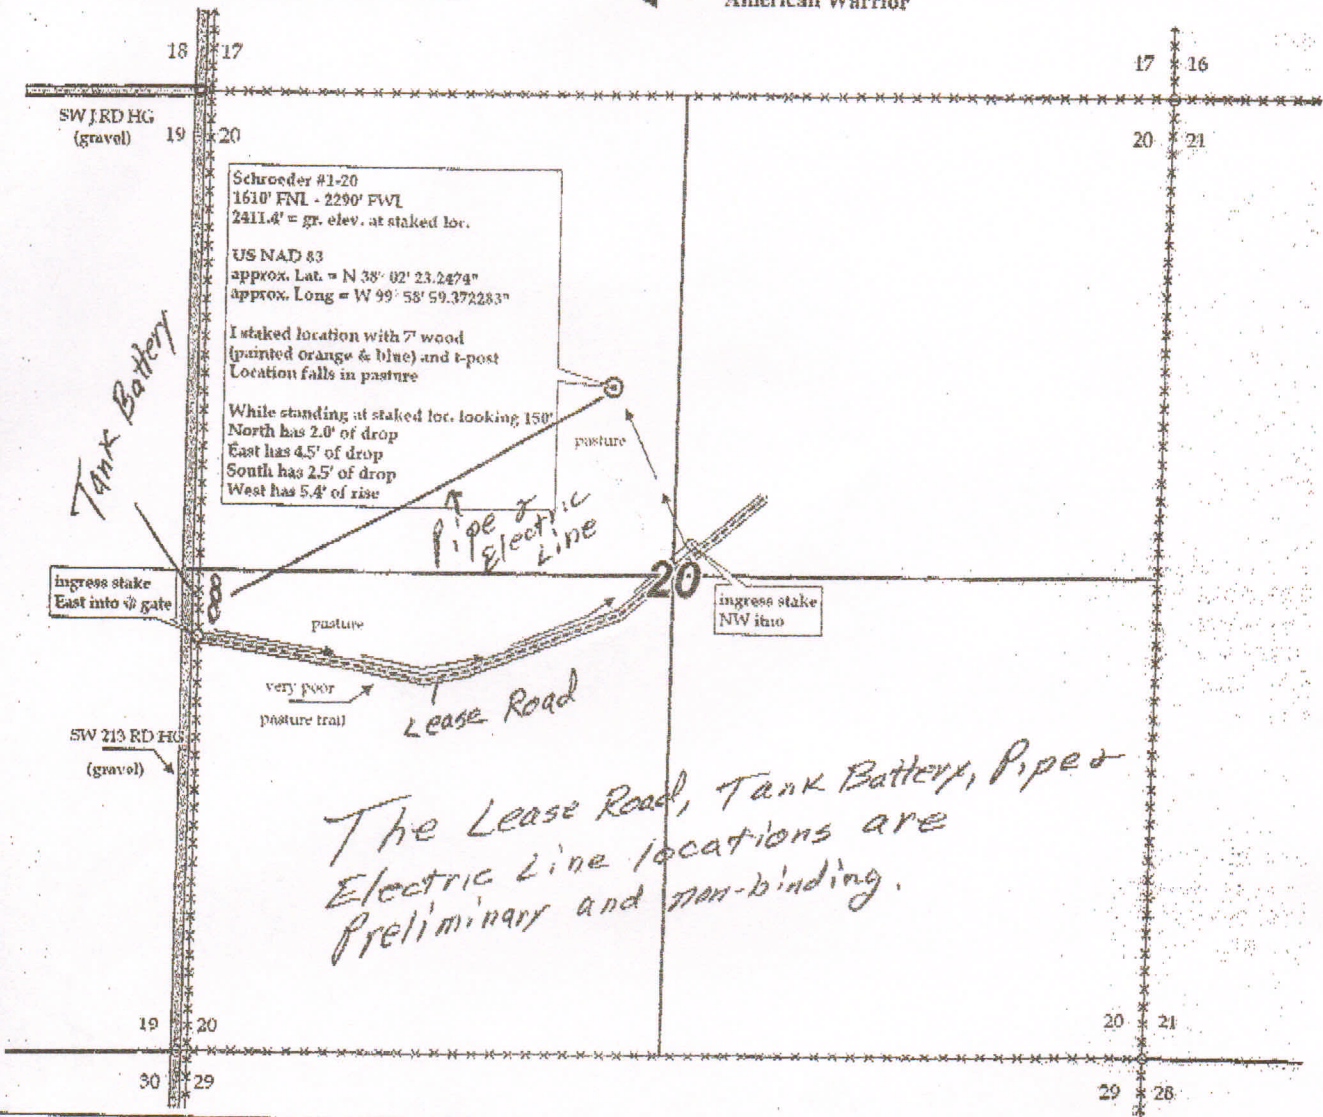 American Warrior
18 17
17 16
SW J RD HG
(gravel)
19 20
20 21
Schroeder #1-20
1610' FNL - 2290' FWL
2411.4' = gr. elev. at staked loc.
US NAD 83
approx. Lat. = N 38° 02' 23.2474"
approx. Long = W 99° 58' 59.372283"
I staked location with 7' wood
(painted orange & blue) and t-post
Location falls in pasture
While standing at staked loc. looking 150'
North has 2.0' of drop
East has 4.5' of drop
South has 2.5' of drop
West has 5.4' of rise
Tank Battery
pasture
Pipe &
Electric
Line
20
ingress stake
East into gate
ingress stake
NW into
pasture
very poor
pasture trail
Lease Road
SW 213 RD HG
(gravel)
The Lease Road, Tank Battery, Pipe &
Electric Line locations are
Preliminary and non-binding.
19 20
20 21
30 29
29 28